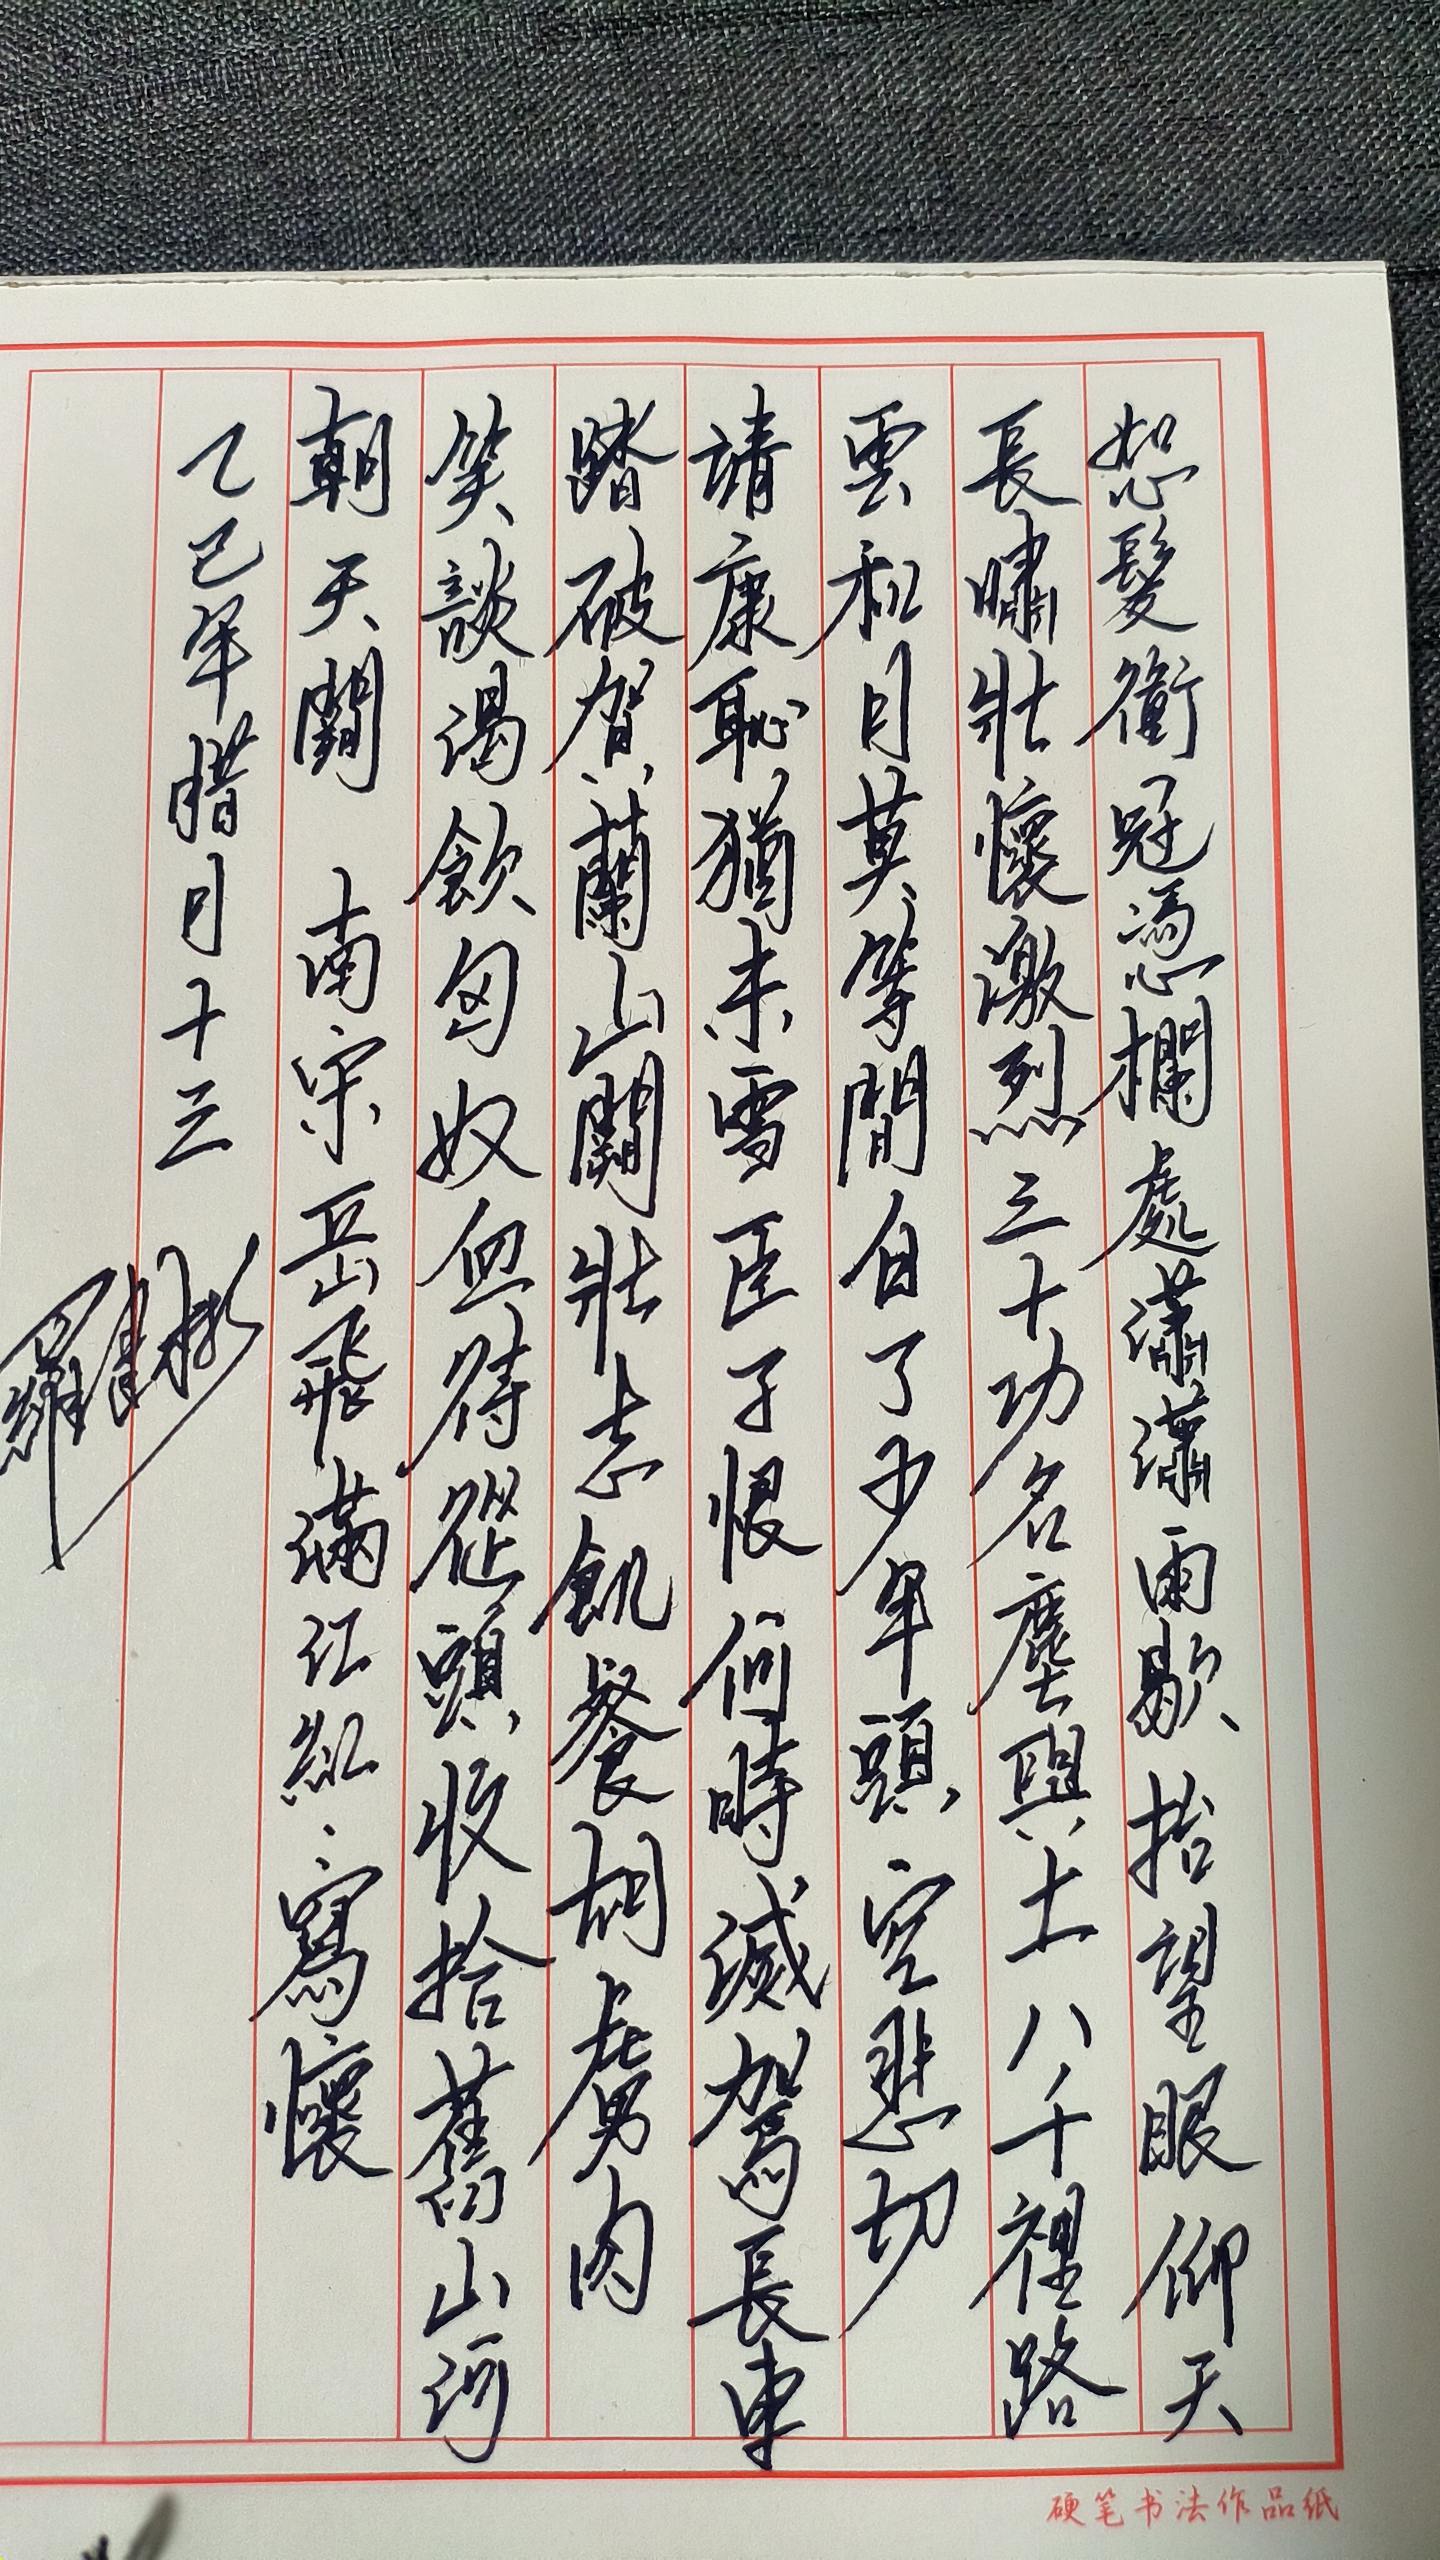 怒髮衝冠憑欄處瀟瀟雨歇抬望眼仰天
長嘯壯懷激烈三十功名塵與土八千裡路
雲和月莫等閒白了少年頭空悲切
靖康恥猶未雪臣子恨何時滅駕長車
踏破賀蘭山闕壯志飢餐胡虜肉
笑談渴飲匈奴血待從頭收拾舊山河
朝天闕 南宋岳飛滿江紅·寫懷
乙巳年腊月十三
硬笔书法作品纸